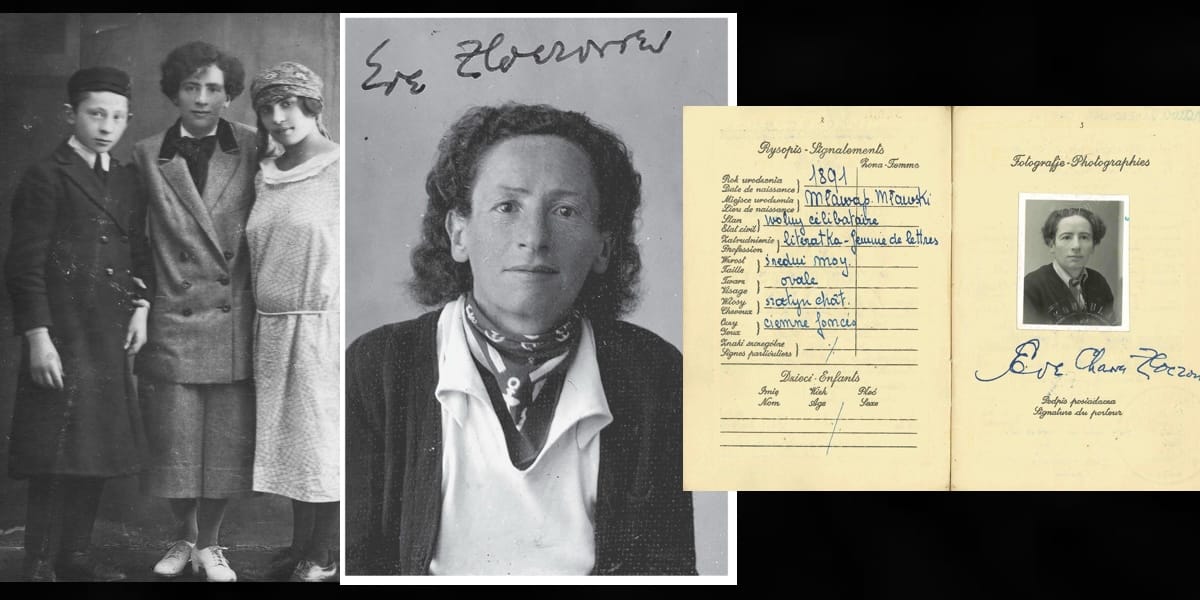 Eve
2
Rysopis-Signalements
Żona-Femme
Rok urodzenia
Date de naissance
1891
Miejsce urodzenia
Lieu de naissance
Mława p. Mławski
Stan
Etat civil
wolny célibataire
Zatrudnienie
Profession
literatka-femme de lettres
Wzrost
Taille
średni moy.
Twarz
Visage
ovale
Włosy
Cheveux
szatyn chât.
Oczy
Yeux
ciemne foncés
Znaki szczególne
Signes particuliers
Dzieci-Enfants
Imię Wiek Płeć
Nom Age Sexe
3
Fotografje-Photographies
Eve Chawa
Podpis posiadacza
Signature du porteur